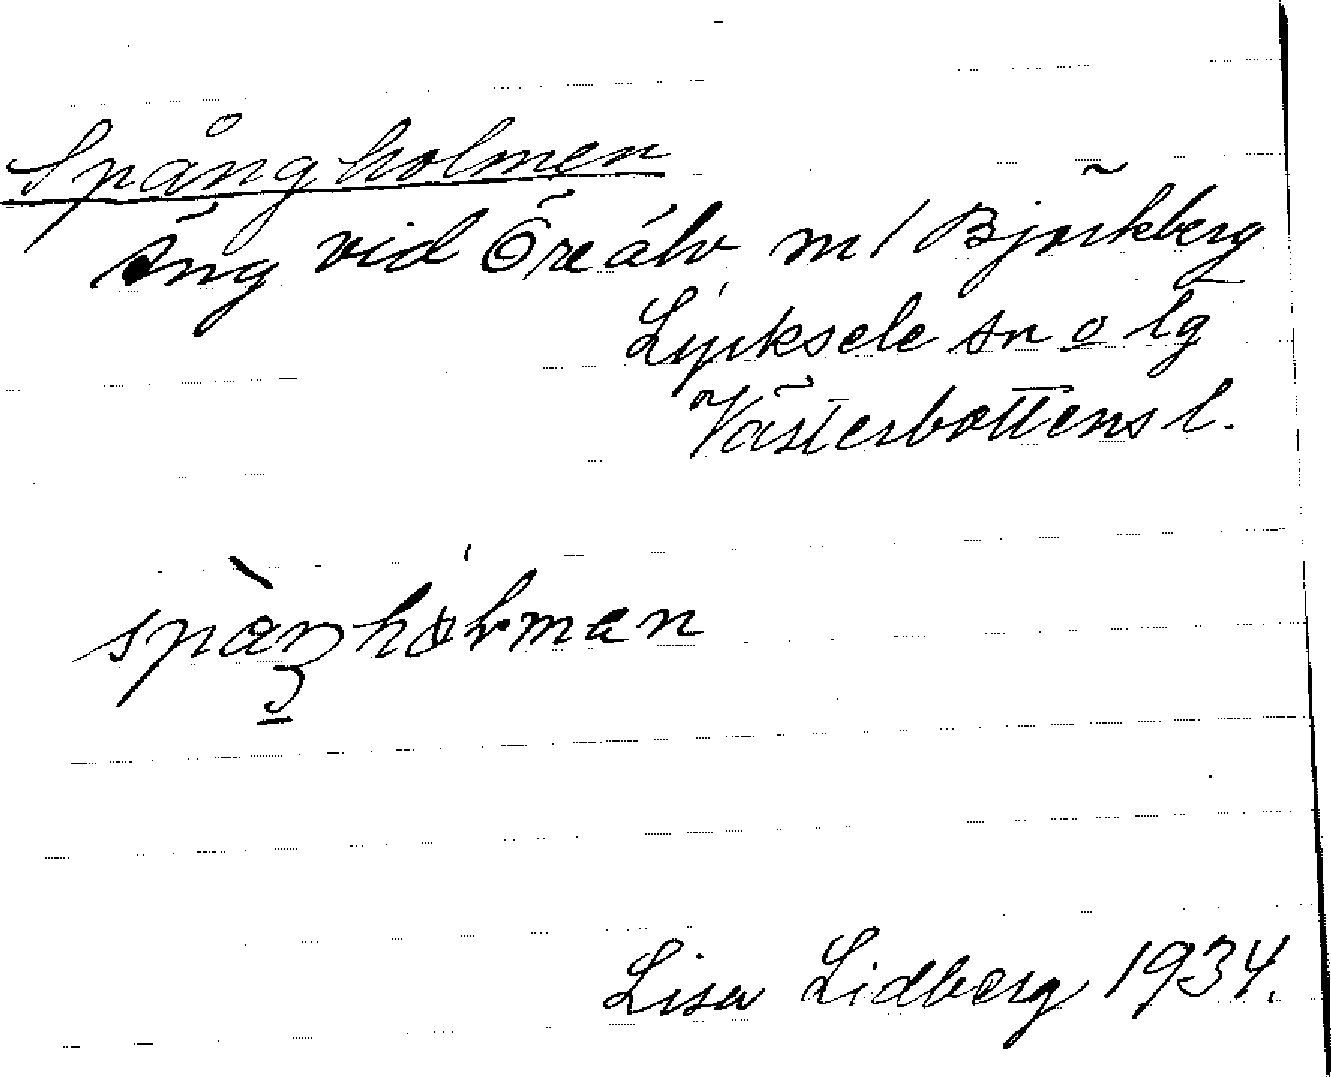 Spångholmen
äng vid Öreälv m/ Björkberg
Lycksele sn o lg
Västerbottens l.
Lisa Lidberg 1934.